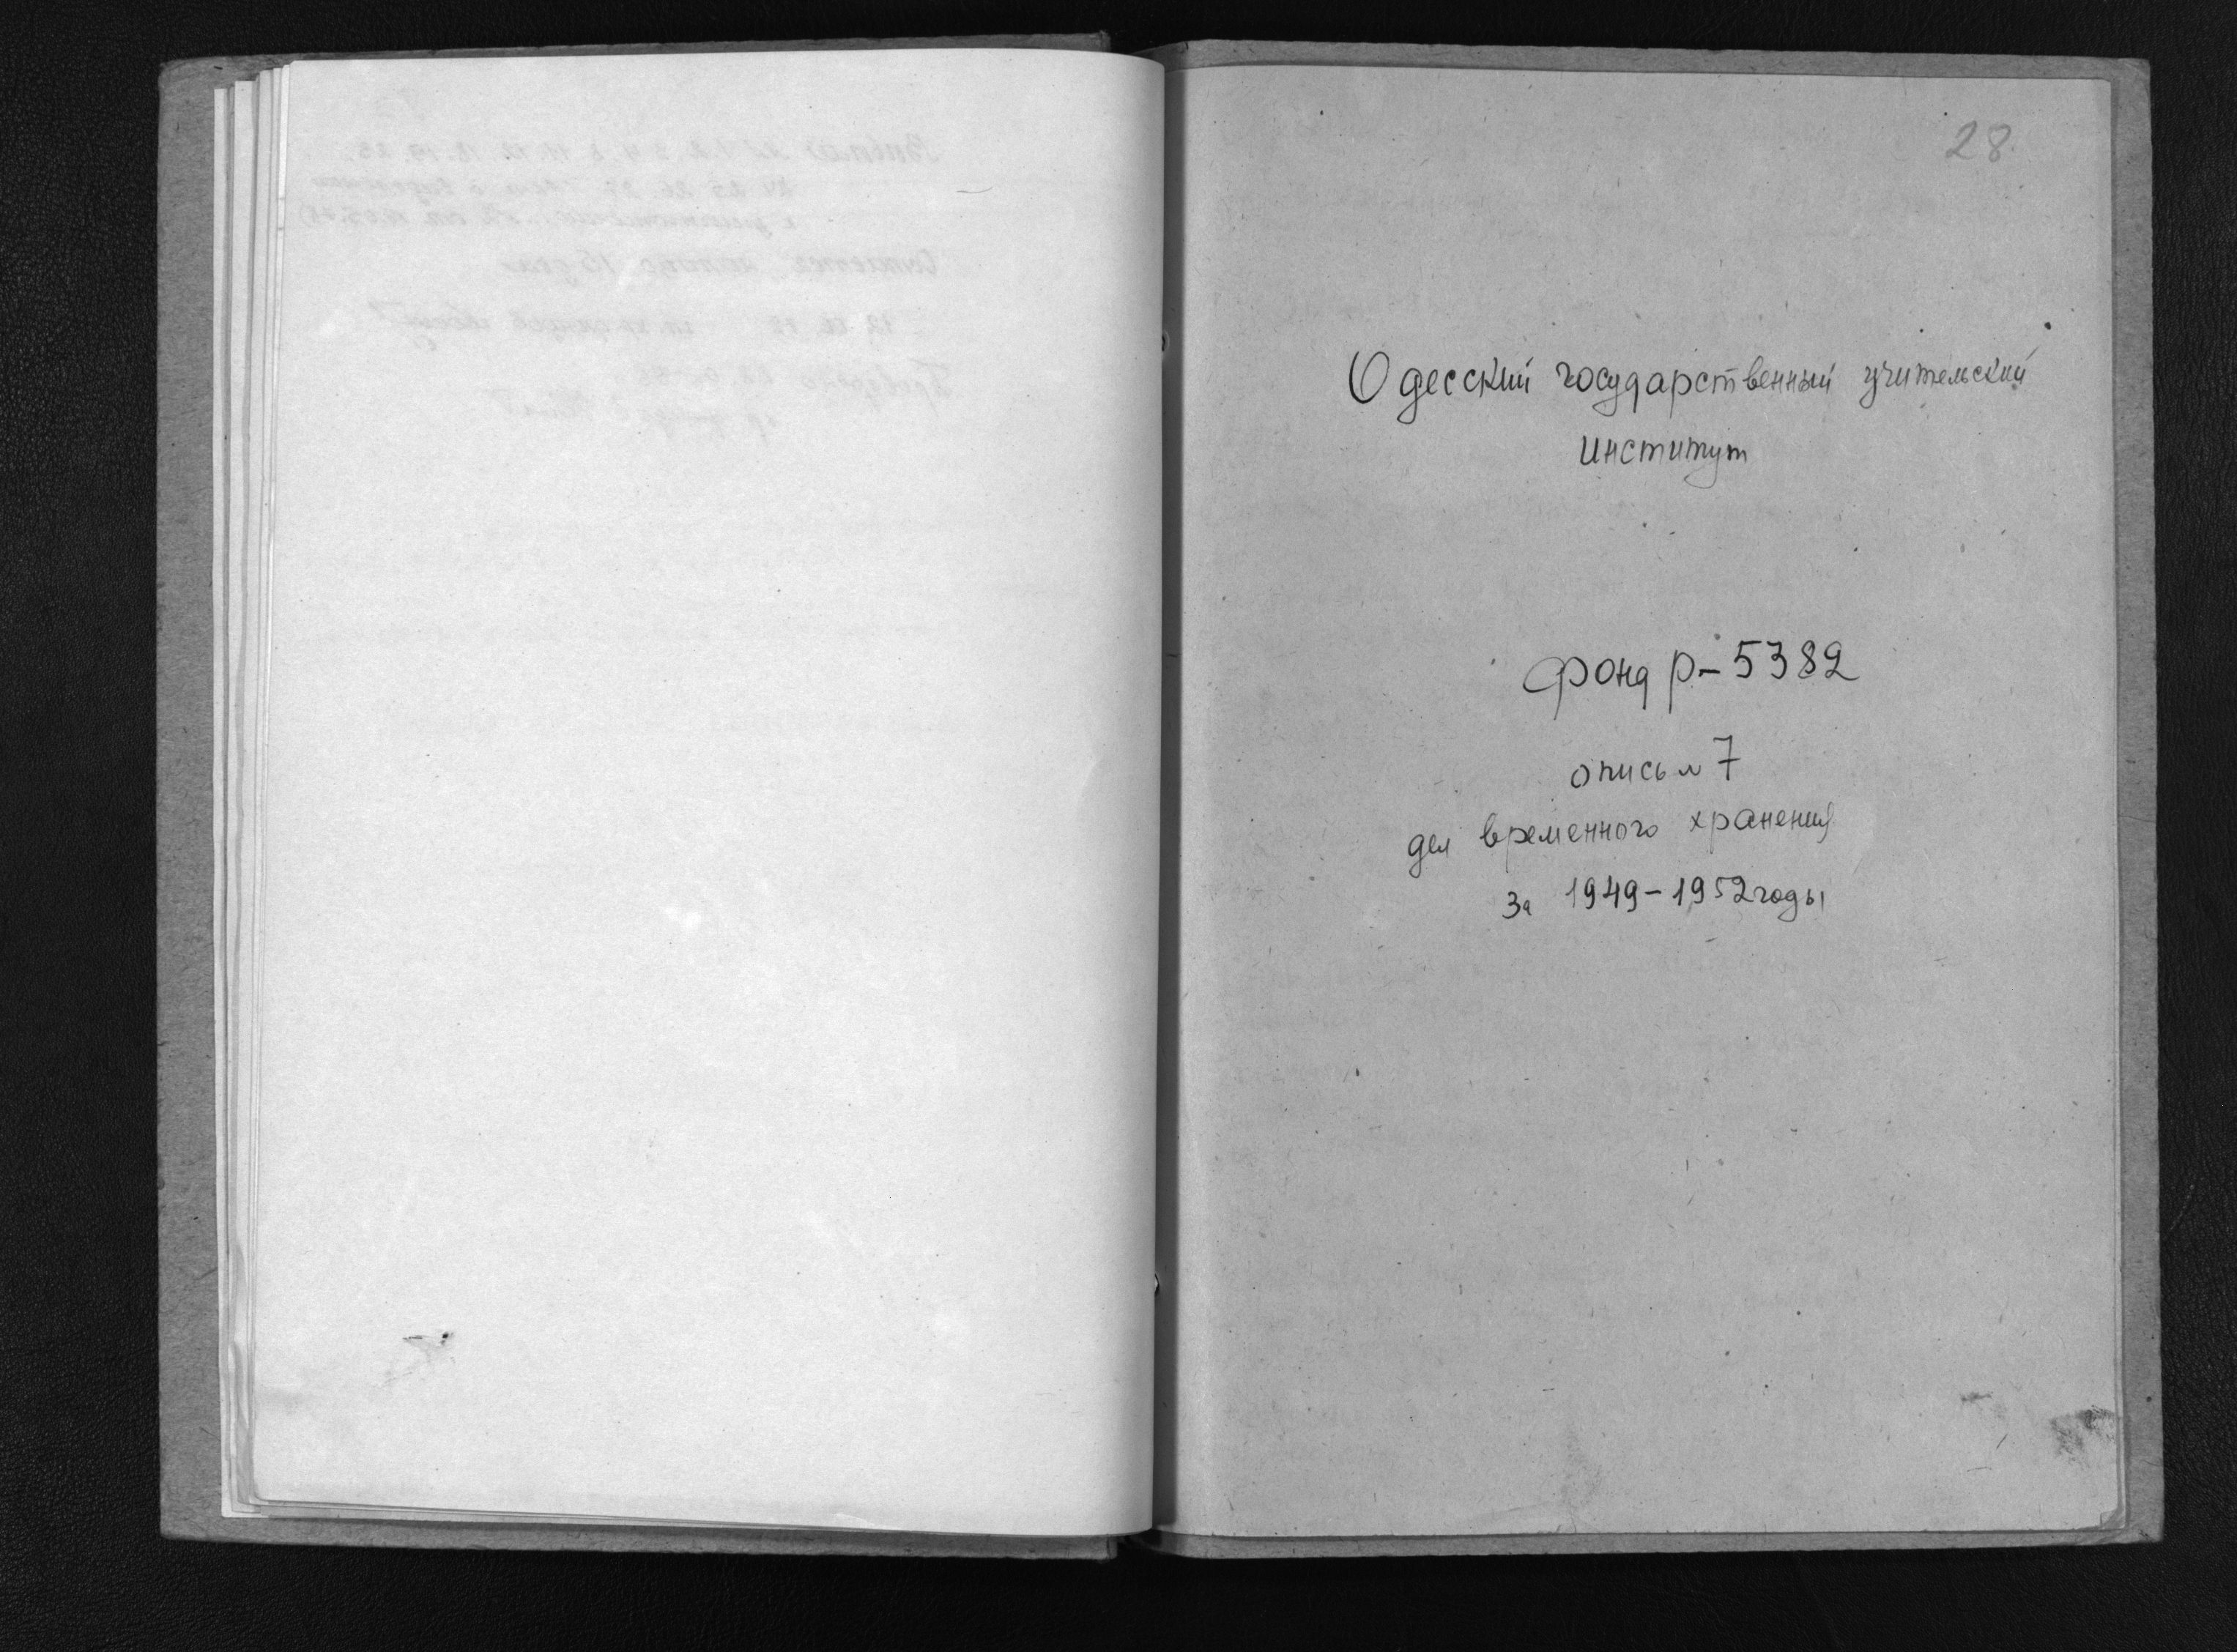 28
Одесский государственный учительский
институт
Фонд р-5382
опись № 7
дел временного хранения
за 1949-1952 годы